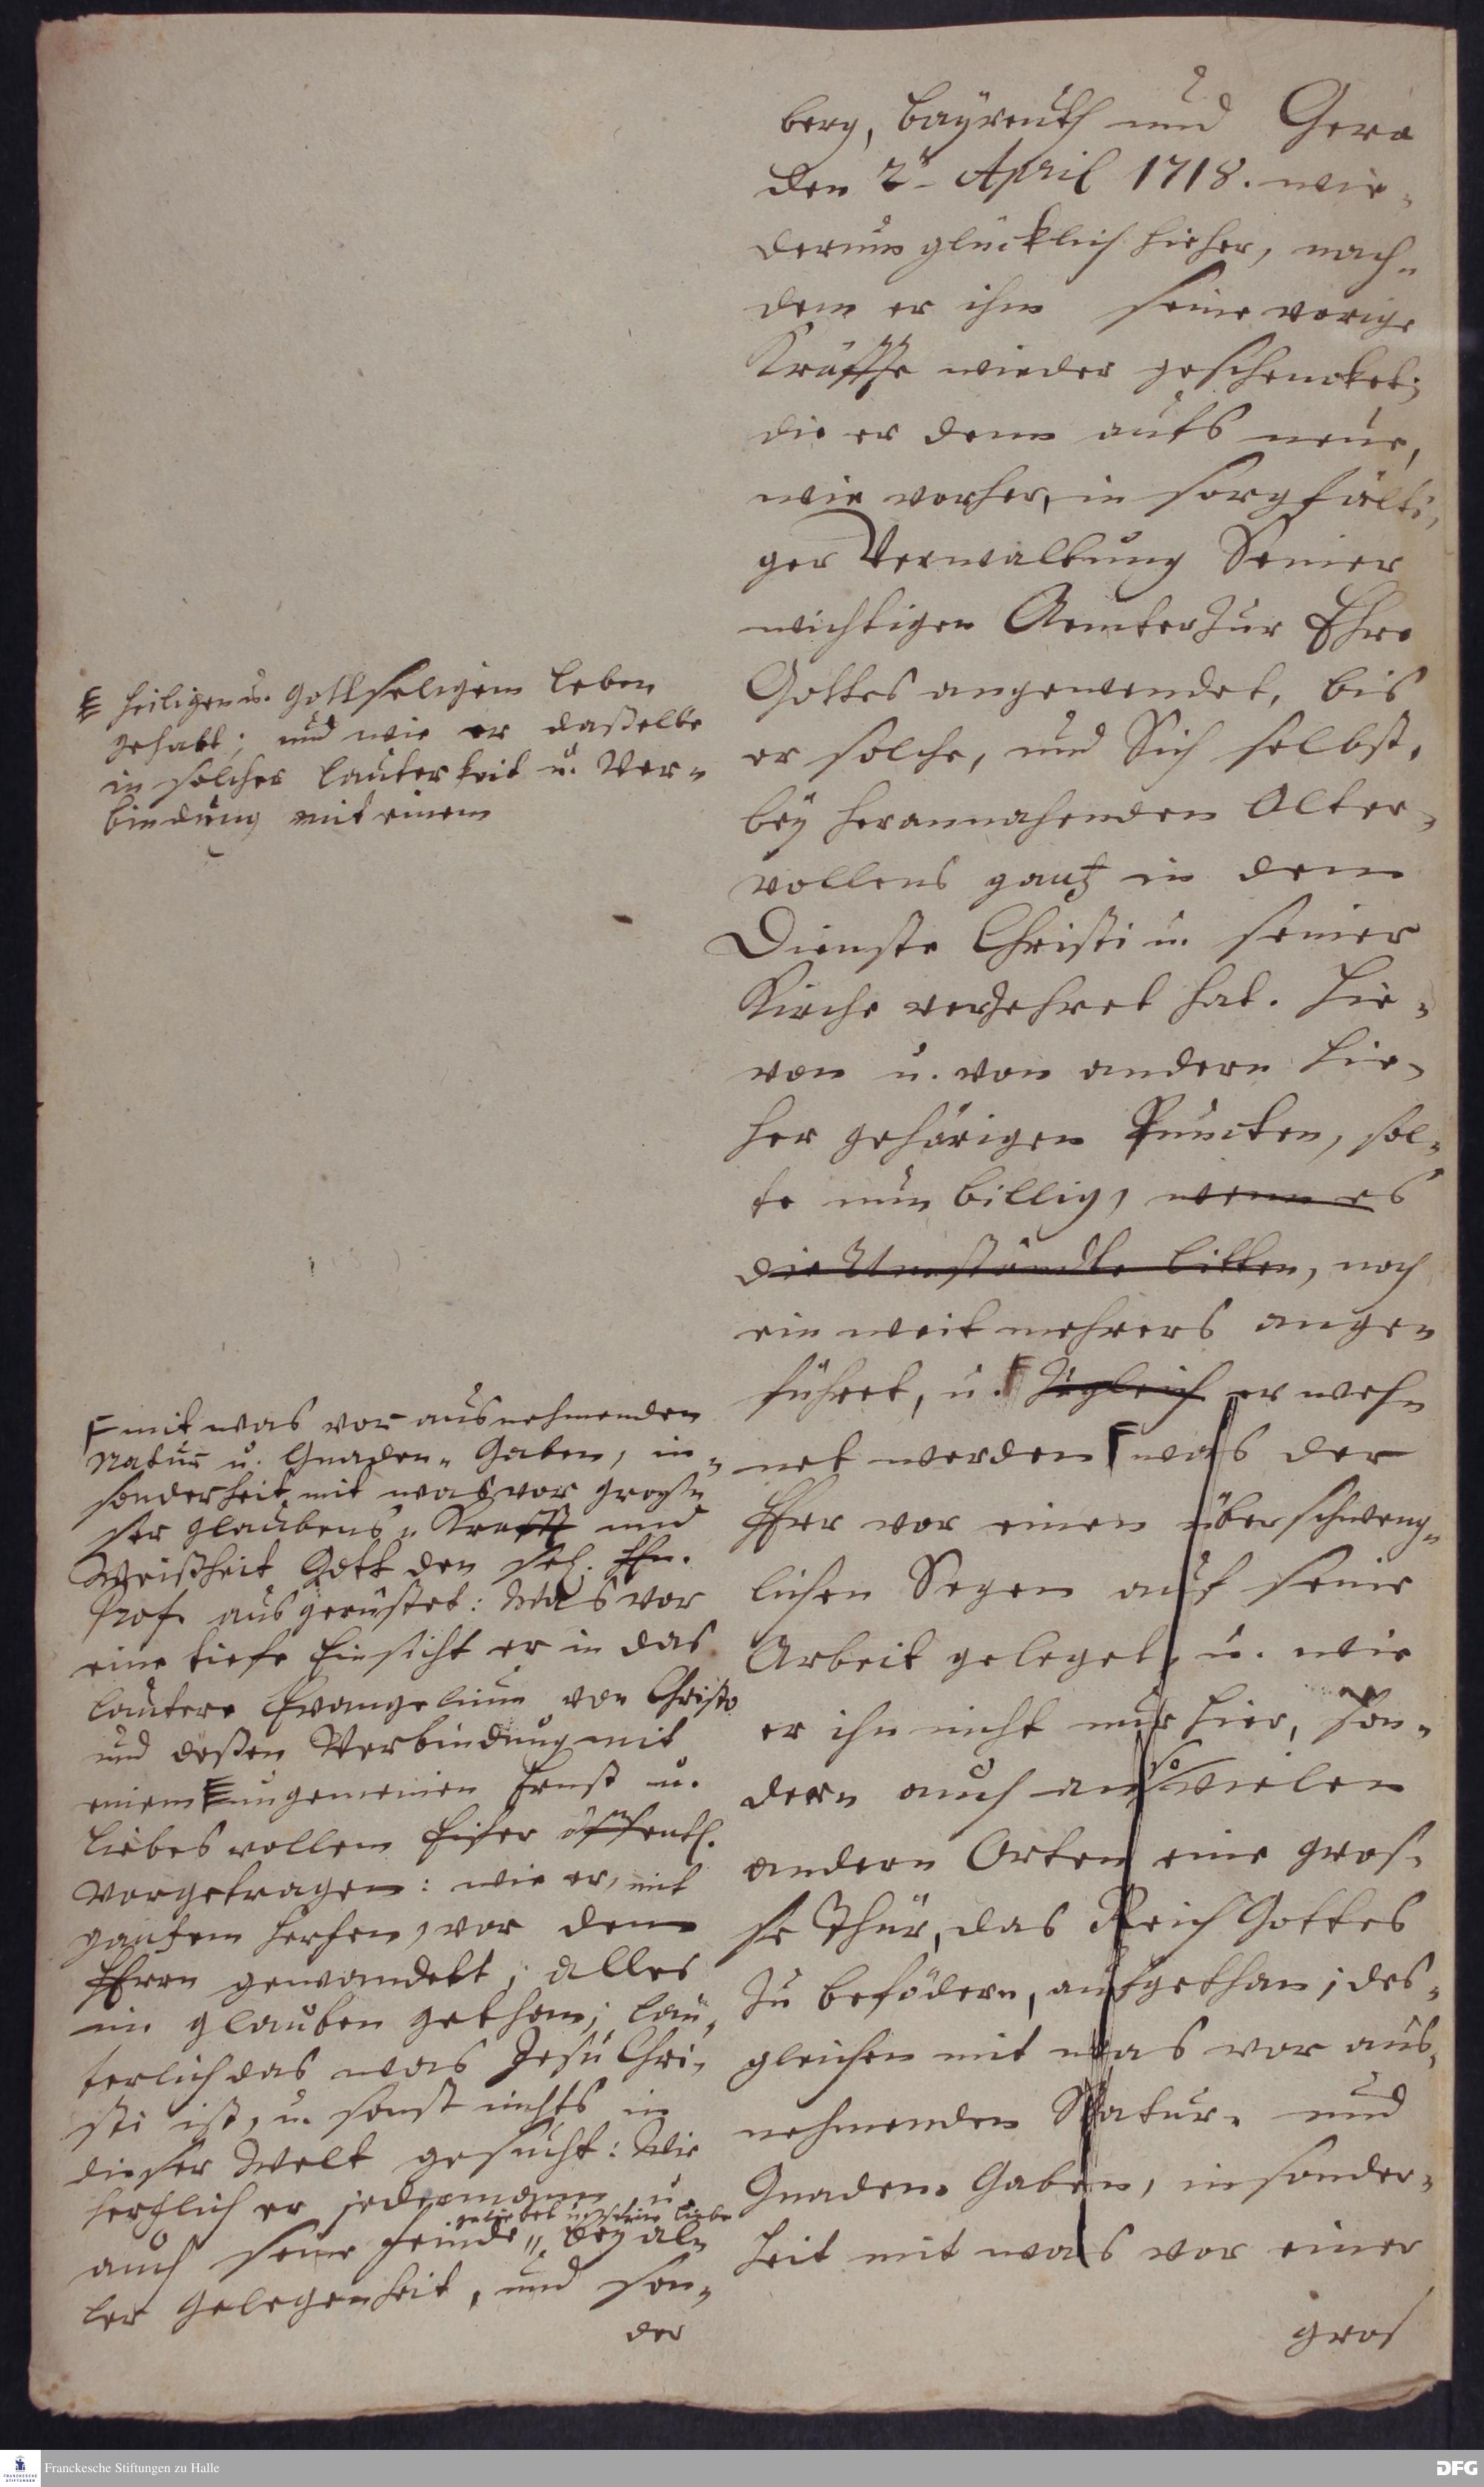 berg, Bayreuth und Gera
den 2t April 1718. wie-
derum glücklich hieher, nach-
dem er ihm seine vorige
Kräffte wieder geschencket;
die er denn aufs neue,
wie vorher, in sorgfälti-
ger Verwaltung Seiner
wichtigen Aemter zur Ehre
Gottes angewendet, bis
er solche, und Sich selbst,
bey herannahenden Alter,
vollens gantz in dem
Dienste Christi u. seiner
Kirche verzehret hat. Hie-
von u. von andern hie-
her gehörigen Puncten, sol-
te nun billig, wenn es
die Umstände litten, noch
ein weit mehrers ange-
führet, u. zugleich erweh-
net werden was der
HErr vor einen überschweng-
lichen Segen auf seine
Arbeit geleget, u. wie
er ihn nicht nur hier, son-
dern auch an so vielen
andern Orten eine gros-
se Thür, das Reich Gottes
zu befödern, aufgethan; des-
gleichen mit was vor aus-
nehmenden Natur- und
Gnaden-Gaben, insonder-
heit mit was vor einer
gros
heiligen u. gottseligen Leben
gehabt; und wie er daßelbe
in solcher Lauterkeit u. Ver-
bindung mit einem
mit was vor ausnehmenden
Natur u. Gnaden-Gaben, in-
sonderheit mit was vor gros-
ser Glaubens-Krafft und
Weißheit Gott den sel. Hn.
Prof. ausgerüstet: Was vor
eine tiefe Einsicht er in das
lautere Evangelium von Christo
und deßen Verbindung mit
einem ungemeinen Ernst u.
liebes vollem Eifer öffentl.
vorgetragen: wie er, mit
gantzem Hertzen, vor dem
HErrn gewandelt; alles
im Glauben gethan; lau-
terlich das was Jesu Chri-
sti ist, u. sonst nichts in
dieser Welt gesucht: Wie
hertzlich er jedermann, u.
geliebet u. seine Liebe
auch seine Feinde, bey al-
ler Gelegenheit, und son-
der
Franckesche Stiftungen zu Halle
DFG